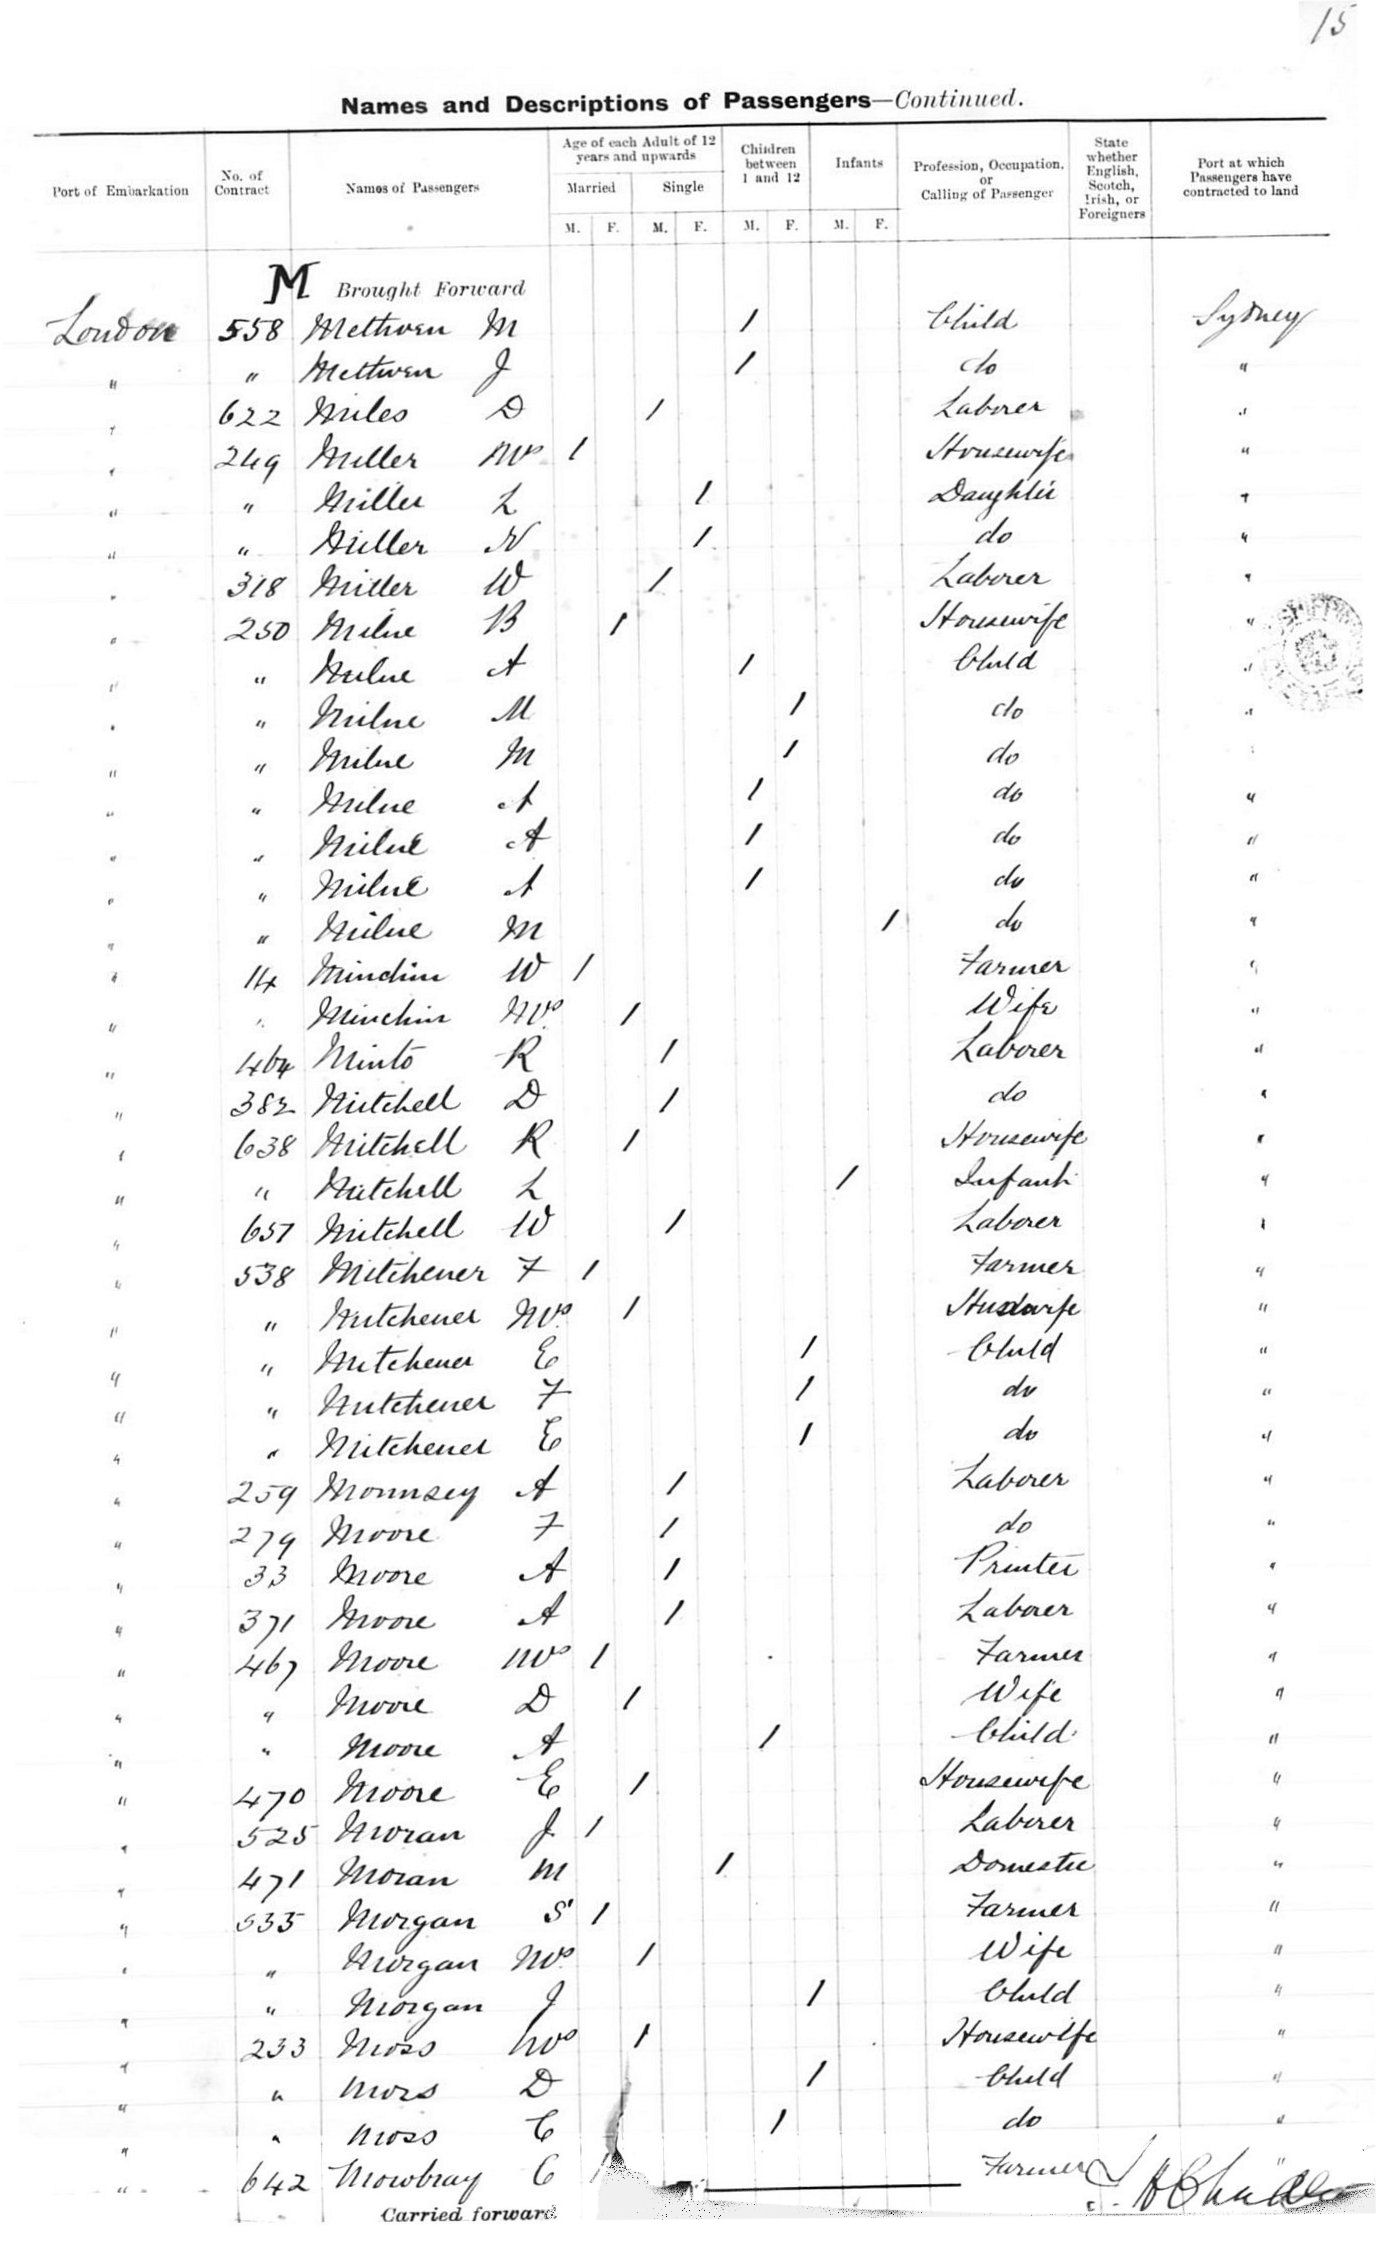 15
Names and Descriptions of Passengers—Continued.
Port of Embarkation No. of Contract Names of Passengers Age of each Adult of 12 years and upwards Children between 1 and 12 Infants Profession, Occupation, or Calling of Passenger State whether English, Scotch, Irish, or Foreigners Port at which Passengers have contracted to land
Married Single
M. F. M. F. M. F. M. F.
M Brought Forward
London 558 Methven M / Child Sydney
" " Methven J / do "
" 622 Miles D / Laborer "
" 249 Miller Mrs / Housewife "
" " Miller L / Daughter "
" " Miller N / do "
" 318 Miller W / Laborer "
" 250 Milne B / Housewife "
" " Milne A / Child "
" " Milne M / do "
" " Milne M / do "
" " Milne A / do "
" " Milne A / do "
" " Milne A / do "
" " Milne M / do "
" 14 Minchin W / Farmer "
" " Minchin Mrs / Wife "
" 464 Minto R / Laborer "
" 382 Mitchell D / do "
" 638 Mitchell R / Housewife "
" " Mitchell L / Infant "
" 651 Mitchell W / Laborer "
" 538 Mitchener F / Farmer "
" " Mitchener Mrs / "
" " Mitchener E / Child "
" " Mitchener F / do "
" " Mitchener E / do "
" 259 Mounsey A / Laborer "
" 279 Moore F / do "
" 33 Moore A / Printer "
" 371 Moore A / Laborer "
" 467 Moore / Farmer "
" " Moore D / Wife "
" " Moore A / Child "
" 470 Moore E / Housewife "
" 525 Moran J / Laborer "
" 471 Moran M / Domestic "
" 535 Morgan S / Farmer "
" " Morgan Mrs / Wife "
" " Morgan J / Child "
" 233 Moss Mrs / Housewife "
" " Moss D / Child "
" " Moss C / do "
" 642 Mowbray C / Farmer "
Carried forward